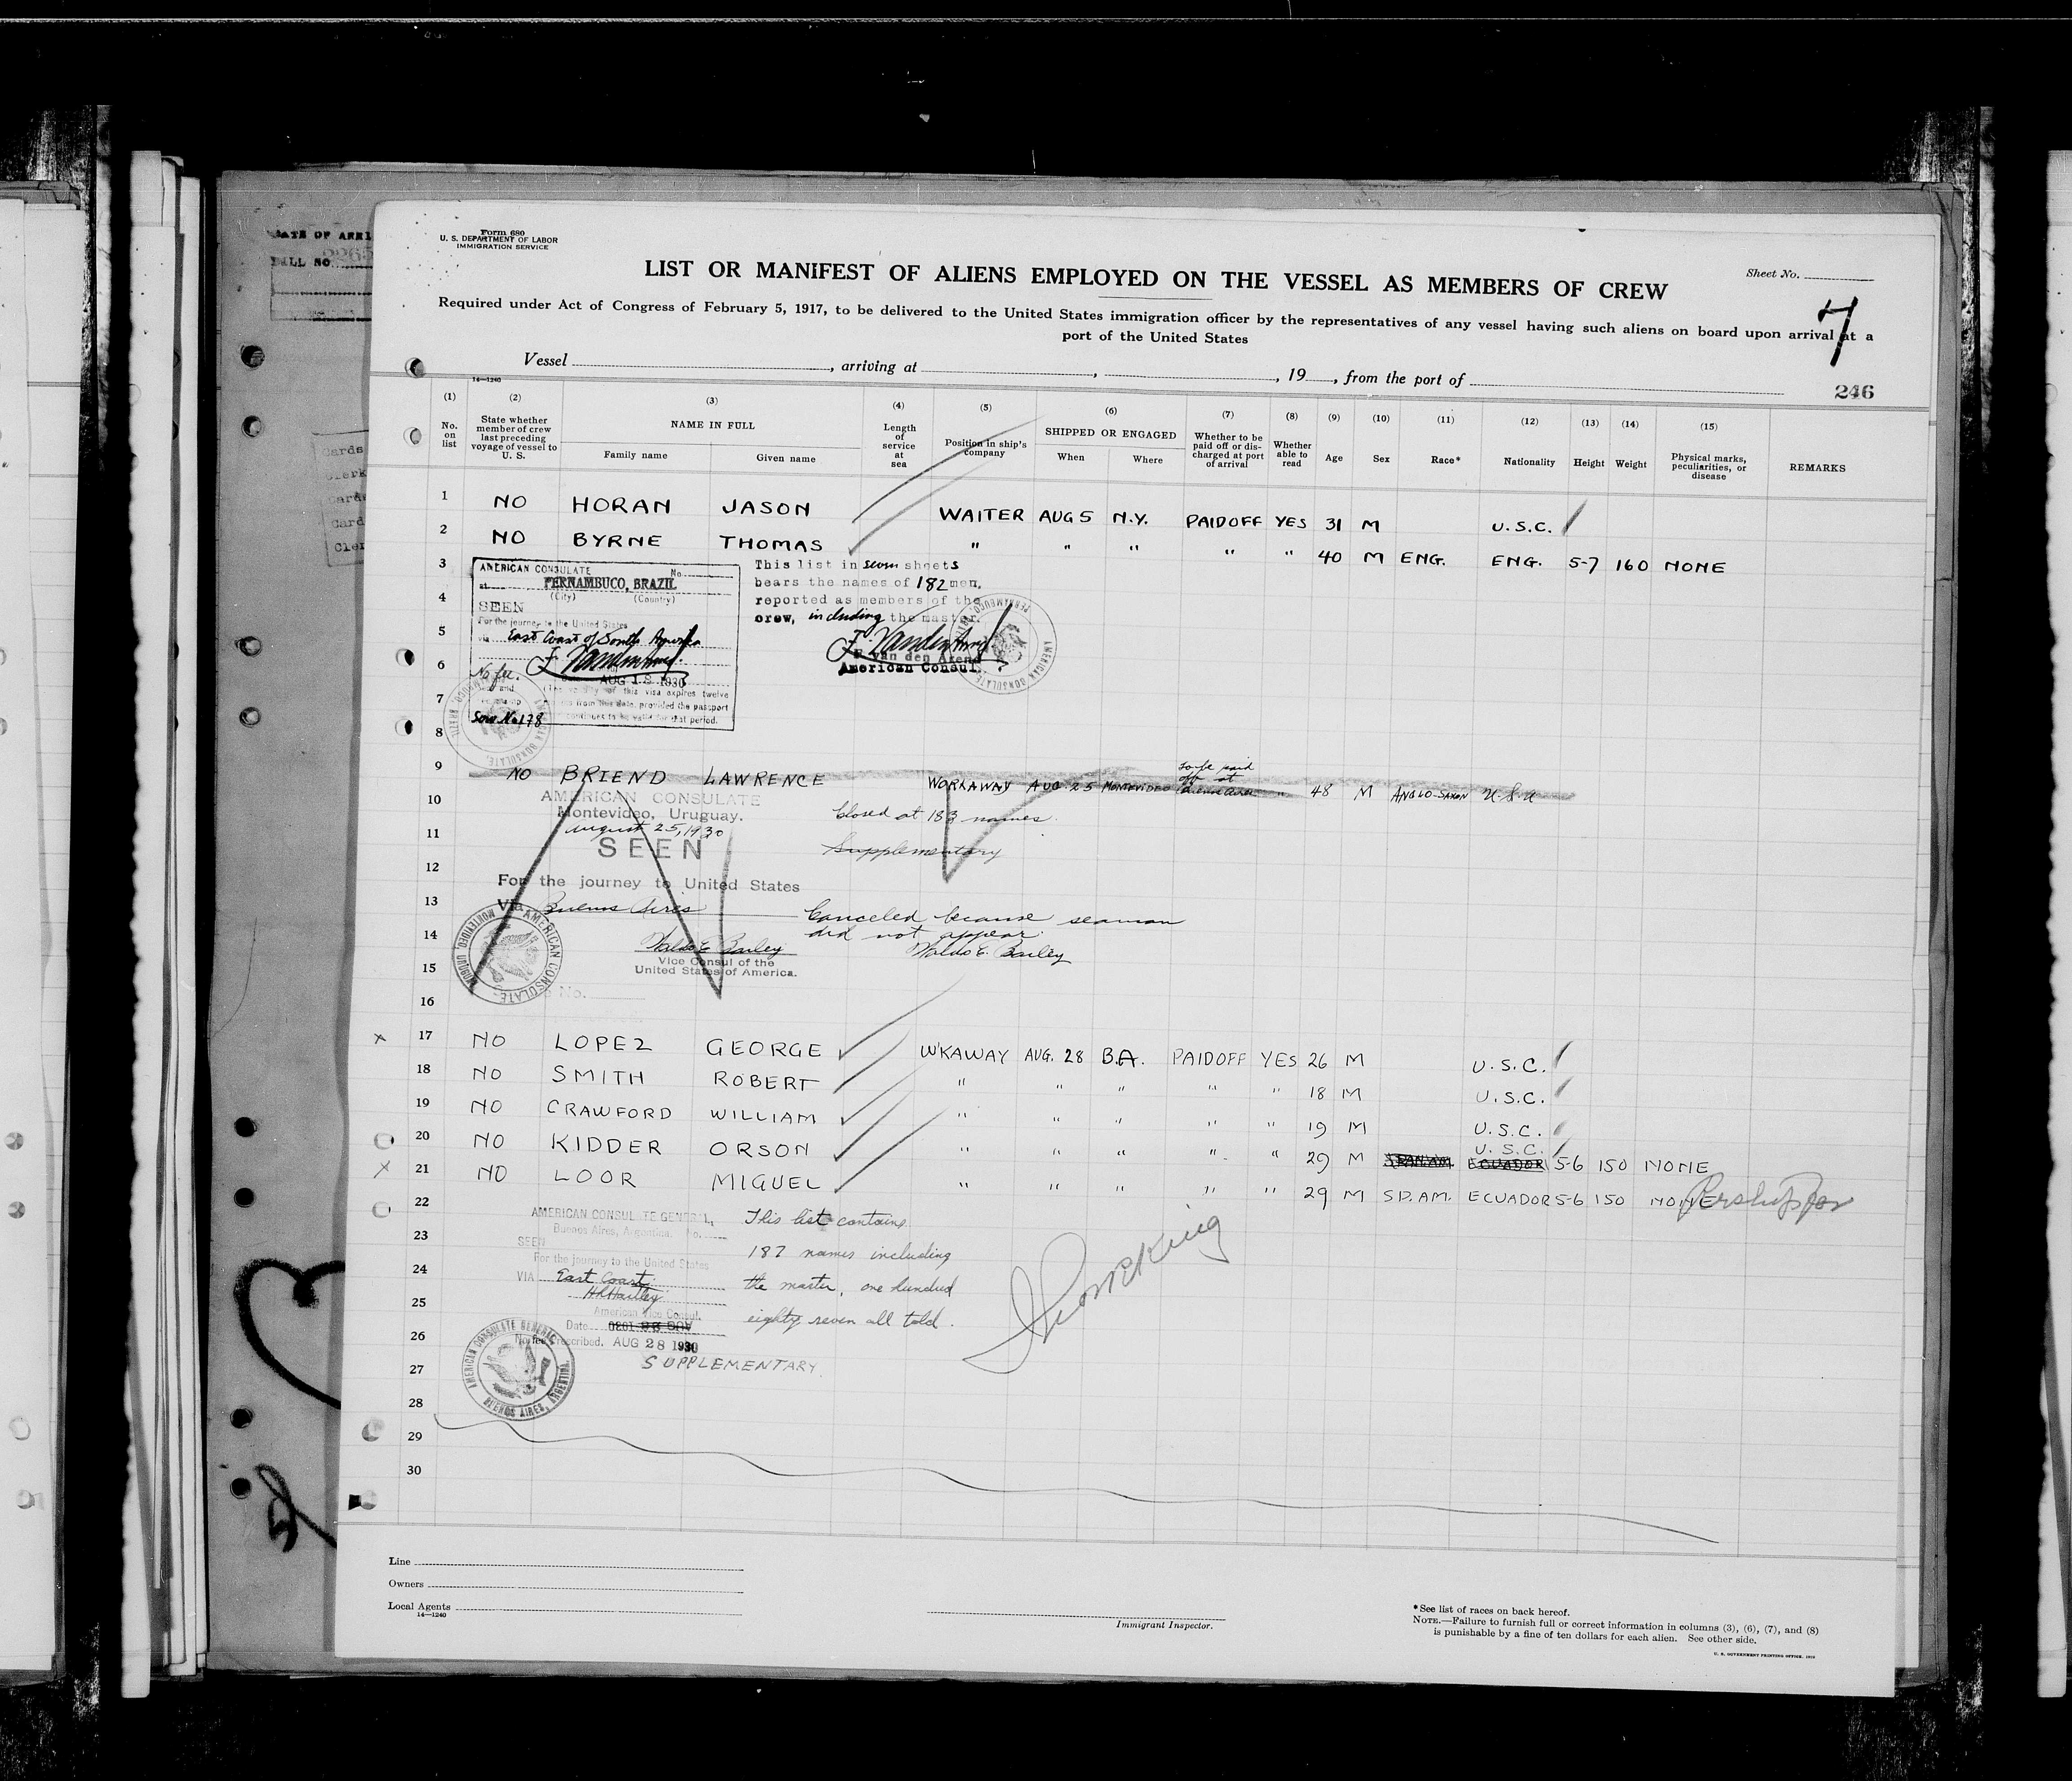 DATE OF ARRI
BILL NO.
Cards
Clerk
Card
Card
Cler
Form 680
U. S. DEPARTMENT OF LABOR
IMMIGRATION SERVICE
LIST OR MANIFEST OF ALIENS EMPLOYED ON THE VESSEL AS MEMBERS OF CREW
Sheet No.
7
Required under Act of Congress of February 5, 1917, to be delivered to the United States immigration officer by the representatives of any vessel having such aliens on board upon arrival at a
port of the United States
Vessel , arriving at , , 19 , from the port of
246
14—1240
(1) (2) (3) (4) (5) (6) (7) (8) (9) (10) (11) (12) (13) (14) (15)
No. on list State whether member of crew last preceding voyage of vessel to U. S. NAME IN FULL Family name Given name Length of service at sea Position in ship's company SHIPPED OR ENGAGED When Where Whether to be paid off or discharged at port of arrival Whether able to read Age Sex Race* Nationality Height Weight Physical marks, peculiarities, or disease REMARKS
1 NO HORAN JASON WAITER AUG 5 N.Y. PAIDOFF YES 31 M U.S.C.
2 NO BYRNE THOMAS " " " " " 40 M ENG. ENG. 5-7 160 NONE
3
4
5
6
7
8
AMERICAN CONSULATE
No.
at PERNAMBUCO, BRAZIL
(City) (Country)
SEEN
For the journey to the United States
via East Coast of South America
No fee.
AUG 18 1930
(The validity of this visa expires twelve
from this date, provided the passport
continues to be valid for that period.
Serv. No. 178
This list in seven sheets
bears the names of 182 men,
reported as members of the
crew, including the master.
F. van den Arend
American Consul.
9 NO BRIEND LAWRENCE WORKAWAY AUG. 25 MONTEVIDEO to be paid off at Buenos Aires " 48 M ANGLO-SAXON U.S.A
10
11
12
13
14
15
16
AMERICAN CONSULATE
Montevideo, Uruguay.
August 25, 1930
SEEN
For the journey to United States
Via Buenos Aires
Waldo E. Bailey
Vice Consul of the
United States of America.
No.
Closed at 183 names.
Supplementary
Canceled because seaman
did not appear.
Waldo E. Bailey
AMERICAN CONSULATE. MONTEVIDEO, URUGUAY
17 NO LOPEZ GEORGE W'KAWAY AUG. 28 B.A. PAIDOFF YES 26 M U.S.C.
18 NO SMITH ROBERT " " " " " 18 M U.S.C.
19 NO CRAWFORD WILLIAM " " " " " 19 M U.S.C.
20 NO KIDDER ORSON " " " " " 29 M U.S.C. ECUADOR 5-6 150 NONE
21 NO LOOR MIGUEL " " " " " 29 M SP. AM. ECUADOR 5-6 150 NONE
22
23
24
25
26
27
28
29
30
AMERICAN CONSULATE GENERAL,
Buenos Aires, Argentina. No.
SEEN
For the journey to the United States
VIA East Coast
American Vice Consul.
Date
No fee prescribed. AUG 28 1930
SUPPLEMENTARY
This list contains
187 names including
the master, one hundred
eighty seven all told.
AMERICAN CONSULATE GENERAL BUENOS AIRES, ARGENTINA
Line
Owners
Local Agents
14—1240
Immigrant Inspector.
*See list of races on back hereof.
NOTE.—Failure to furnish full or correct information in columns (3), (6), (7), and (8)
is punishable by a fine of ten dollars for each alien. See other side.
U. S. GOVERNMENT PRINTING OFFICE